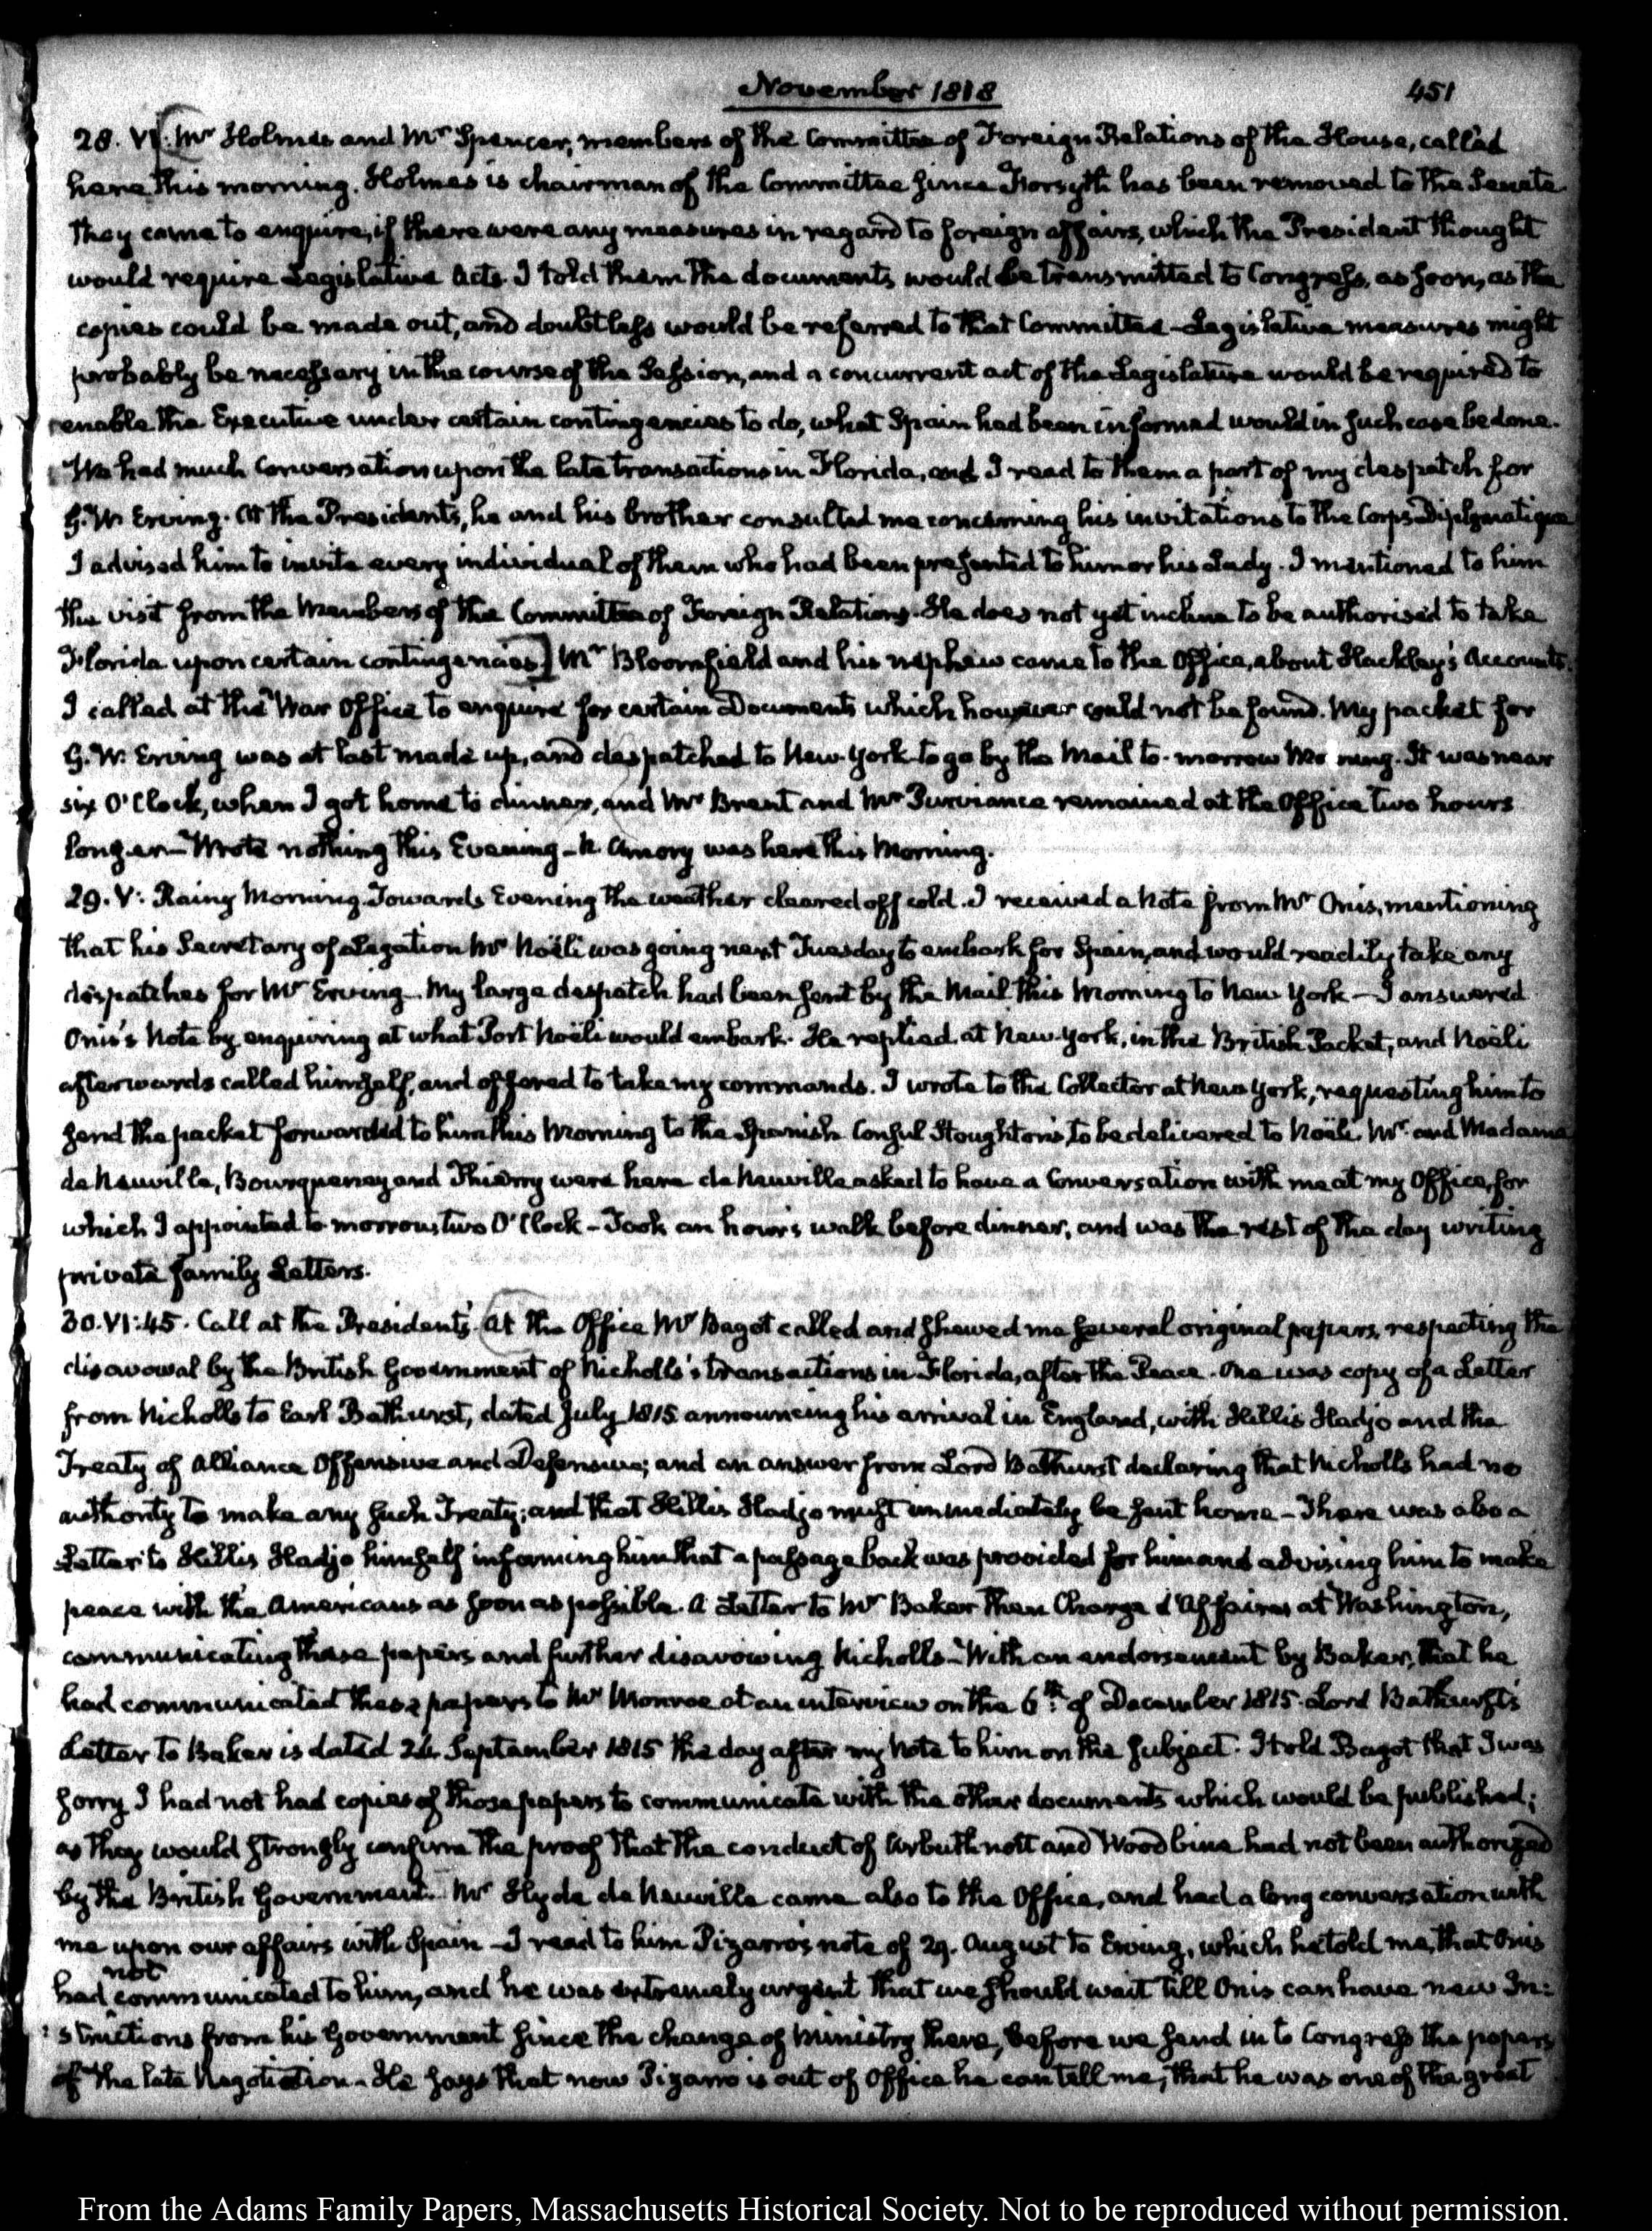 November 1818 451
28. VI: Mr Holmes and Mr Spencer, members of the Committee of Foreign Relations of the House, called
here this morning. Holmes is chairman of the Committee since Forsyth has been removed to the Senate.
They came to enquire, if there were any measures in regard to foreign affairs, which the President thought
would require Legislative acts. I told them the documents would be transmitted to Congress, as soon, as the
copies could be made out, and doubtless would be referred to that Committee - Legislative measures might
probably be necessary in the course of the Session, and a concurrent act of the Legislature would be required to
enable the Executive under certain contingencies to do, what Spain had been informed would in such case be done.
We had much Conversation upon the late transactions in Florida, and I read to them a part of my despatch for
G. W. Erving. At the Presidents, he and his brother consulted me concerning his invitations to the Corps Diplomatique
I advised him to invite every individual of them who had been presented to him or his Lady. I mentioned to him
the visit from the Members of the Committee of Foreign Relations. He does not yet incline to be authorised to take
Florida upon certain contingencies] Mr Bloomfield and his nephew came to the Office, about Hackley's Accounts.
I called at the War Office to enquire for certain Documents which however could not be found. My packet for
G. W. Erving was at last made up, and despatched to New-York to go by the Mail to-morrow Morning. It was near
six O'Clock, when I got home to dinner, and Mr Brent and Mr Purviance remained at the Office two hours
longer - Wrote nothing this Evening - N. Amory was here this Morning.
29. V: Rainy Morning. Towards Evening the weather cleared off cold. I received a Note from Mr Onis, mentioning
that his Secretary of Legation Mr Noëli was going next Tuesday to embark for Spain, and would readily take any
despatches for Mr Erving. My large despatch had been sent by the Mail this Morning to New York - I answered
Onis's Note by enquiring at what Port Noëli would embark. He replied, at New-York, in the British Packet, and Noëli
afterwards called himself, and offered to take my commands. I wrote to the Collector at New York, requesting him to
send the packet forwarded to him this Morning to the Spanish Consul Stoughton's, to be delivered to Noëli. Mr and Madame
de Neuville, Bourqueney and Thierry were here de Neuville asked to have a Conversation with me at my Office, for
which I appointed to morrow, two O'Clock - Took an hour's walk before dinner, and was the rest of the day writing
private family Letters.
30. VI:45. Call at the President's. At the Office Mr Bagot called and shewed me several original papers, respecting the
disavowal by the British Government of Nicholls's transactions in Florida, after the Peace. One was copy of a Letter
from Nicholls to Earl Bathurst, dated July 1815 announcing his arrival in England, with Hillis Hadjo and the
Treaty of Alliance Offensive and Defensive; and an answer from Lord Bathurst declaring that Nicholls had no
authority to make any such Treaty; and that Hillis Hadjo must immediately be sent home - There was also a
Letter to Hillis Hadjo himself informing him that a passage back was provided for him and advising him to make
peace with the Americans as soon as possible. A Letter to Mr Baker then Charge d'Affaires at Washington,
communicating these papers and further disavowing Nicholls - With an endorsement by Baker, that he
had communicated these papers to Mr Monroe at an interview on the 6th of December 1815. Lord Bathurst's
Letter to Baker is dated September 1815 the day after my Note to him on the subject. I told Bagot that I was
sorry I had not had copies of those papers to communicate with the other documents which would be published;
as they would strongly confirm the proof that the conduct of Arbuthnott and Woodbine had not been authorized
by the British Government. Mr Hyde de Neuville came also to the Office, and had a long conversation with
me upon our affairs with Spain - I read to him Pizarro's note of 29. August to Erving, which he told me, that Onis
had not communicated to him, and he was extremely urgent that we should wait till Onis can have new In:
:structions from his Government since the change of Ministry there, before we send in to Congress the papers
of the late Negotiation - He says that now Pizarro is out of Office he can tell me, that he was one of the great
From the Adams Family Papers, Massachusetts Historical Society. Not to be reproduced without permission.